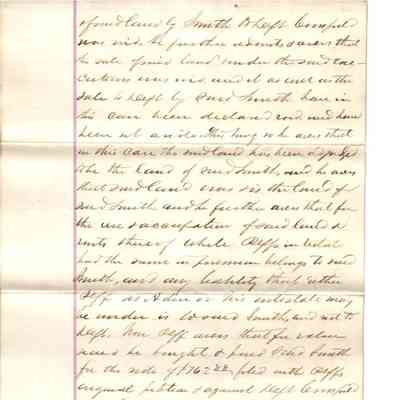 of said land by Smith & Deft Campbell
was void. he further admits & avers that
the sale of said land under the said exe-
cution was void and as well as the
sale to Deft by said Smith have in
this case been declared void and have
been set aside. This being so he avers that
in this case the said land has been adjudged
to be the land of said Smith, and he avers
that said land was & is the land of
said Smith and he further avers that for
the use & occupation of said land &
rents thereof while Deffs intestate
had the same in possession belongs to said
Smith, and any liability that either
Deff as Admr or his intestate may
be under is to said Smith, and not to
Deft. Now Deff avers that for value
recd he bought & paid said Smith
for the note of $176.22 filed with Deffs
original petition & against Deft Campbell